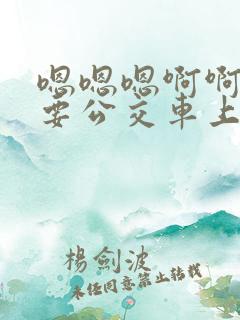 嗯嗯嗯啊啊
要公交車上
楊劍波
未经同意禁止转载